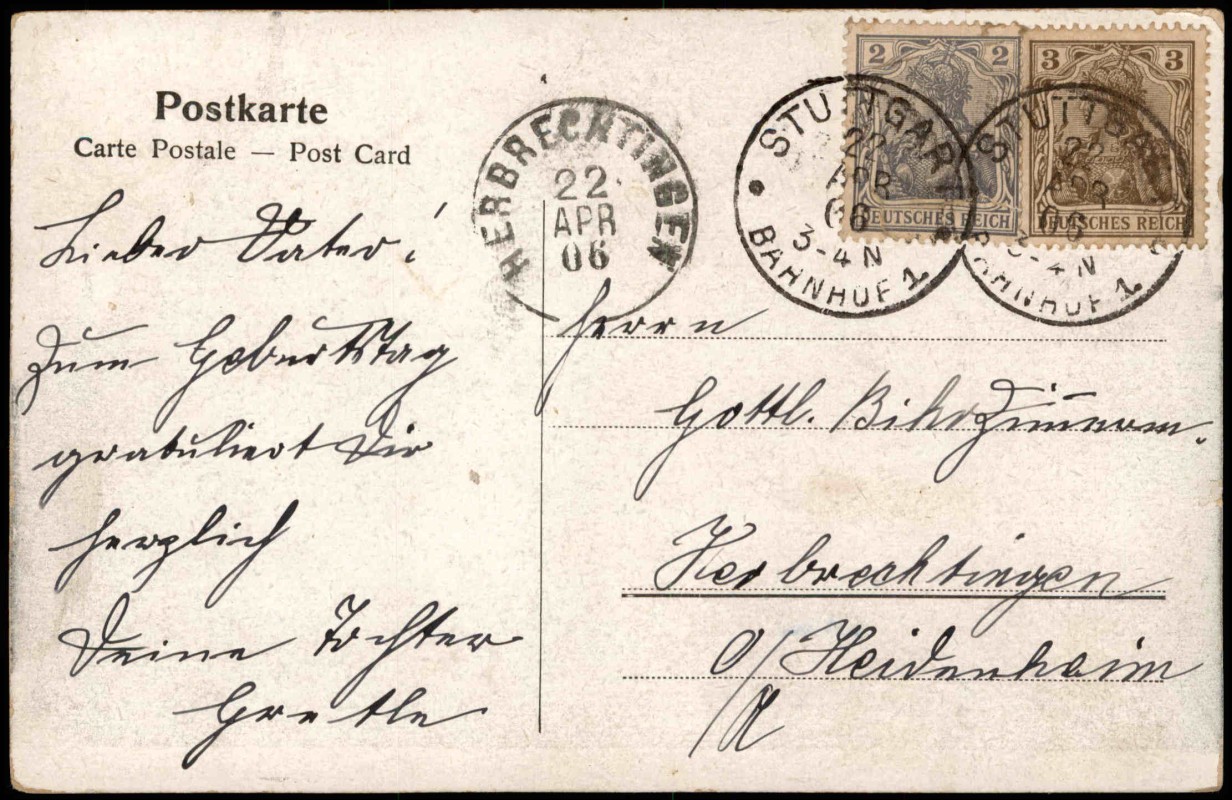 Postkarte
Carte Postale — Post Card
Lieber Vater!
Zum Geburtstag
gratuliert Dir
herzlich
Deine Tochter
Gretle
HERBRECHTINGEN
22
APR
06
2 2
DEUTSCHES REICH
3 3
DEUTSCHES REICH
STUTTGART
22
APR
06
3-4 N
BAHNHOF 1
STUTTGART
22
APR
06
3-4 N
BAHNHOF 1
Herrn
Gottl. Zimmerm.
Herbrechtingen
o/Heidenheim